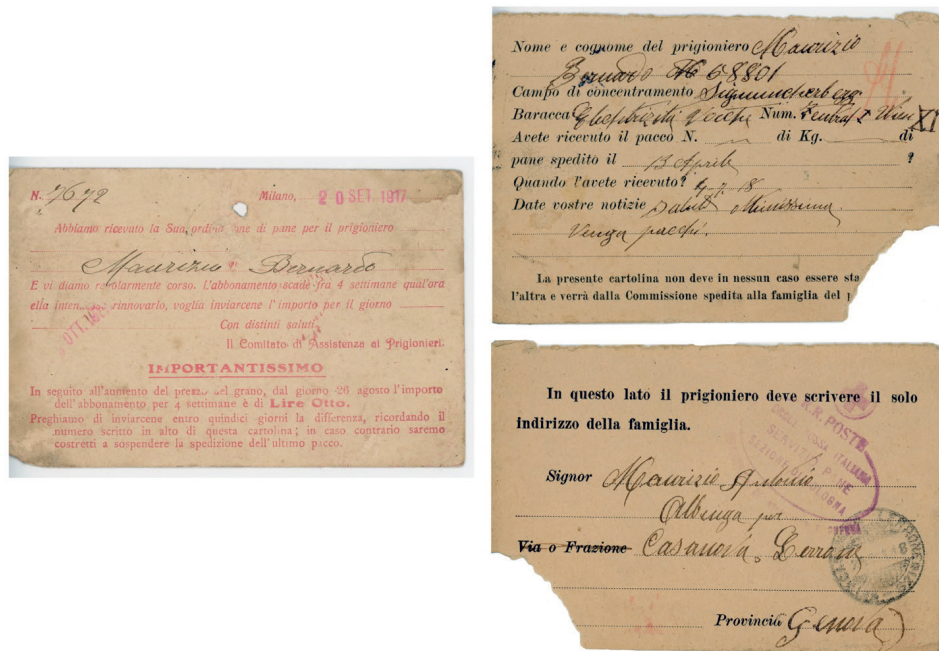 N. 7672 Milano, 20 SET. 1917
Abbiamo ricevuto la Sua ordinazione di pane per il prigioniero
Maurizio Bernardo
E vi diamo regolarmente corso. L'abbonamento scade fra 4 settimane qual'ora
ella intendesse rinnovarlo, voglia inviarcene l'importo per il giorno
OTT. 1
Con distinti saluti
Il Comitato di Assistenza ai Prigionieri.
IMPORTANTISSIMO
In seguito all'aumento del prezzo del grano, dal giorno 26 agosto l'importo
dell'abbonamento per 4 settimane è di Lire Otto.
Preghiamo di inviarcene entro quindici giorni la differenza, ricordando il
numero scritto in alto di questa cartolina; in caso contrario saremo
costretti a sospendere la spedizione dell'ultimo pacco.
Nome e cognome del prigioniero Maurizio
Bernardo 68801
Campo di concentramento Sigmundsherberg
Baracca Num. Wien
XI
Avete ricevuto il pacco N. di Kg. di
pane spedito il 13 Aprile ?
Quando l'avete ricevuto? 4-7-18
Date vostre notizie salute ottimissima
Venga pacchi.
La presente cartolina non deve in nessun caso essere sta
l'altra e verrà dalla Commissione spedita alla famiglia del p
In questo lato il prigioniero deve scrivere il solo
indirizzo della famiglia.
R.R. POSTE
CROCE ROSSA ITALIANA
SERVIZIO PANE
SEZIONE DI BOLOGNA
Signor Maurizio Antonio
Albenga per
Via o Frazione Casanova Lerrone
Provincia Genova